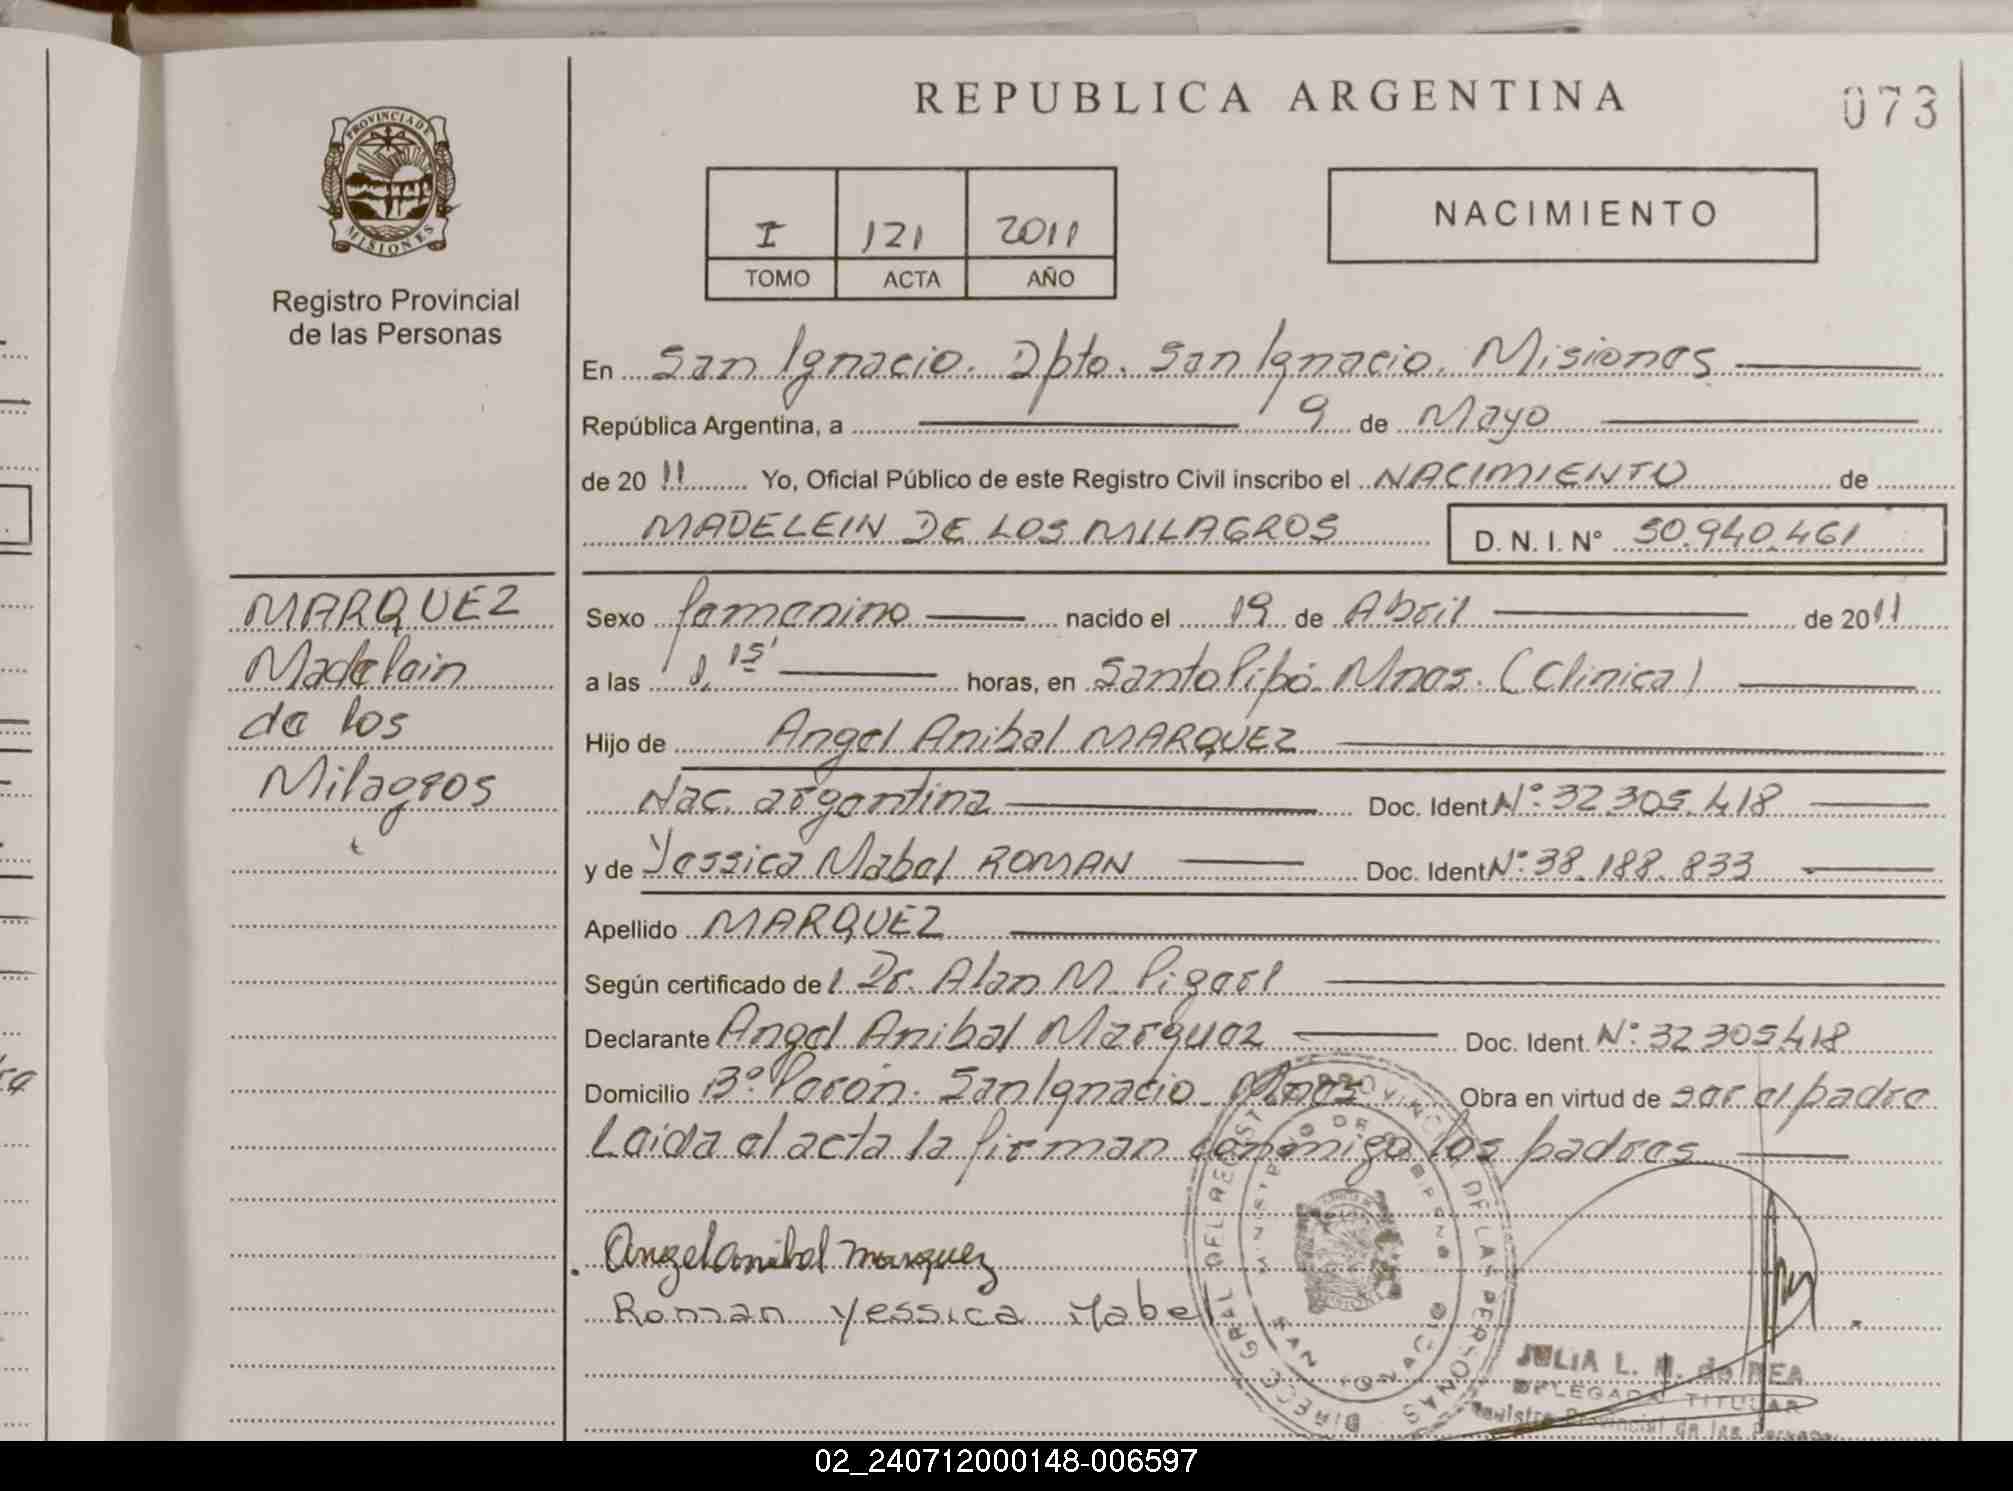 REPUBLICA ARGENTINA
073
PROVINCIA DE
MISIONES
Registro Provincial
de las Personas
I 121 2011
TOMO ACTA AÑO
NACIMIENTO
En San Ignacio. Dpto. San Ignacio. Misiones
República Argentina, a 9 de Mayo
de 20 11 Yo, Oficial Público de este Registro Civil inscribo el NACIMIENTO de
MADELEIN DE LOS MILAGROS D. N. I. N° 50.940.461
MARQUEZ
Madelein
de los
Milagros
Sexo femenino nacido el 19 de Abril de 2011
a las 1,15' horas, en Santo Pipó. Mnes. (Clinica)
Hijo de Angel Anibal MARQUEZ
Nac. argentina Doc. Ident N°: 32.305.418
y de Yessica Mabel ROMAN Doc. Ident N°: 38.188.833
Apellido MARQUEZ
Según certificado de l Dr. Alan M.
Declarante Angel Anibal Marquez Doc. Ident. N°: 32305418
Domicilio B° Perón. San Ignacio. Mnes Obra en virtud de ser el padre
Leida el acta la firman conmigo los padres
Angel anibal marquez
Roman Yessica Mabel
DIRECC GRAL DEL REGIST PROVINC DE LAS PERSONAS
MINISTERIO DE GOBIERNO
SAN IGNACIO
JULIA L. de REA
DELEGADA TITULAR
Registro Provincial de las Personas
02_240712000148-006597